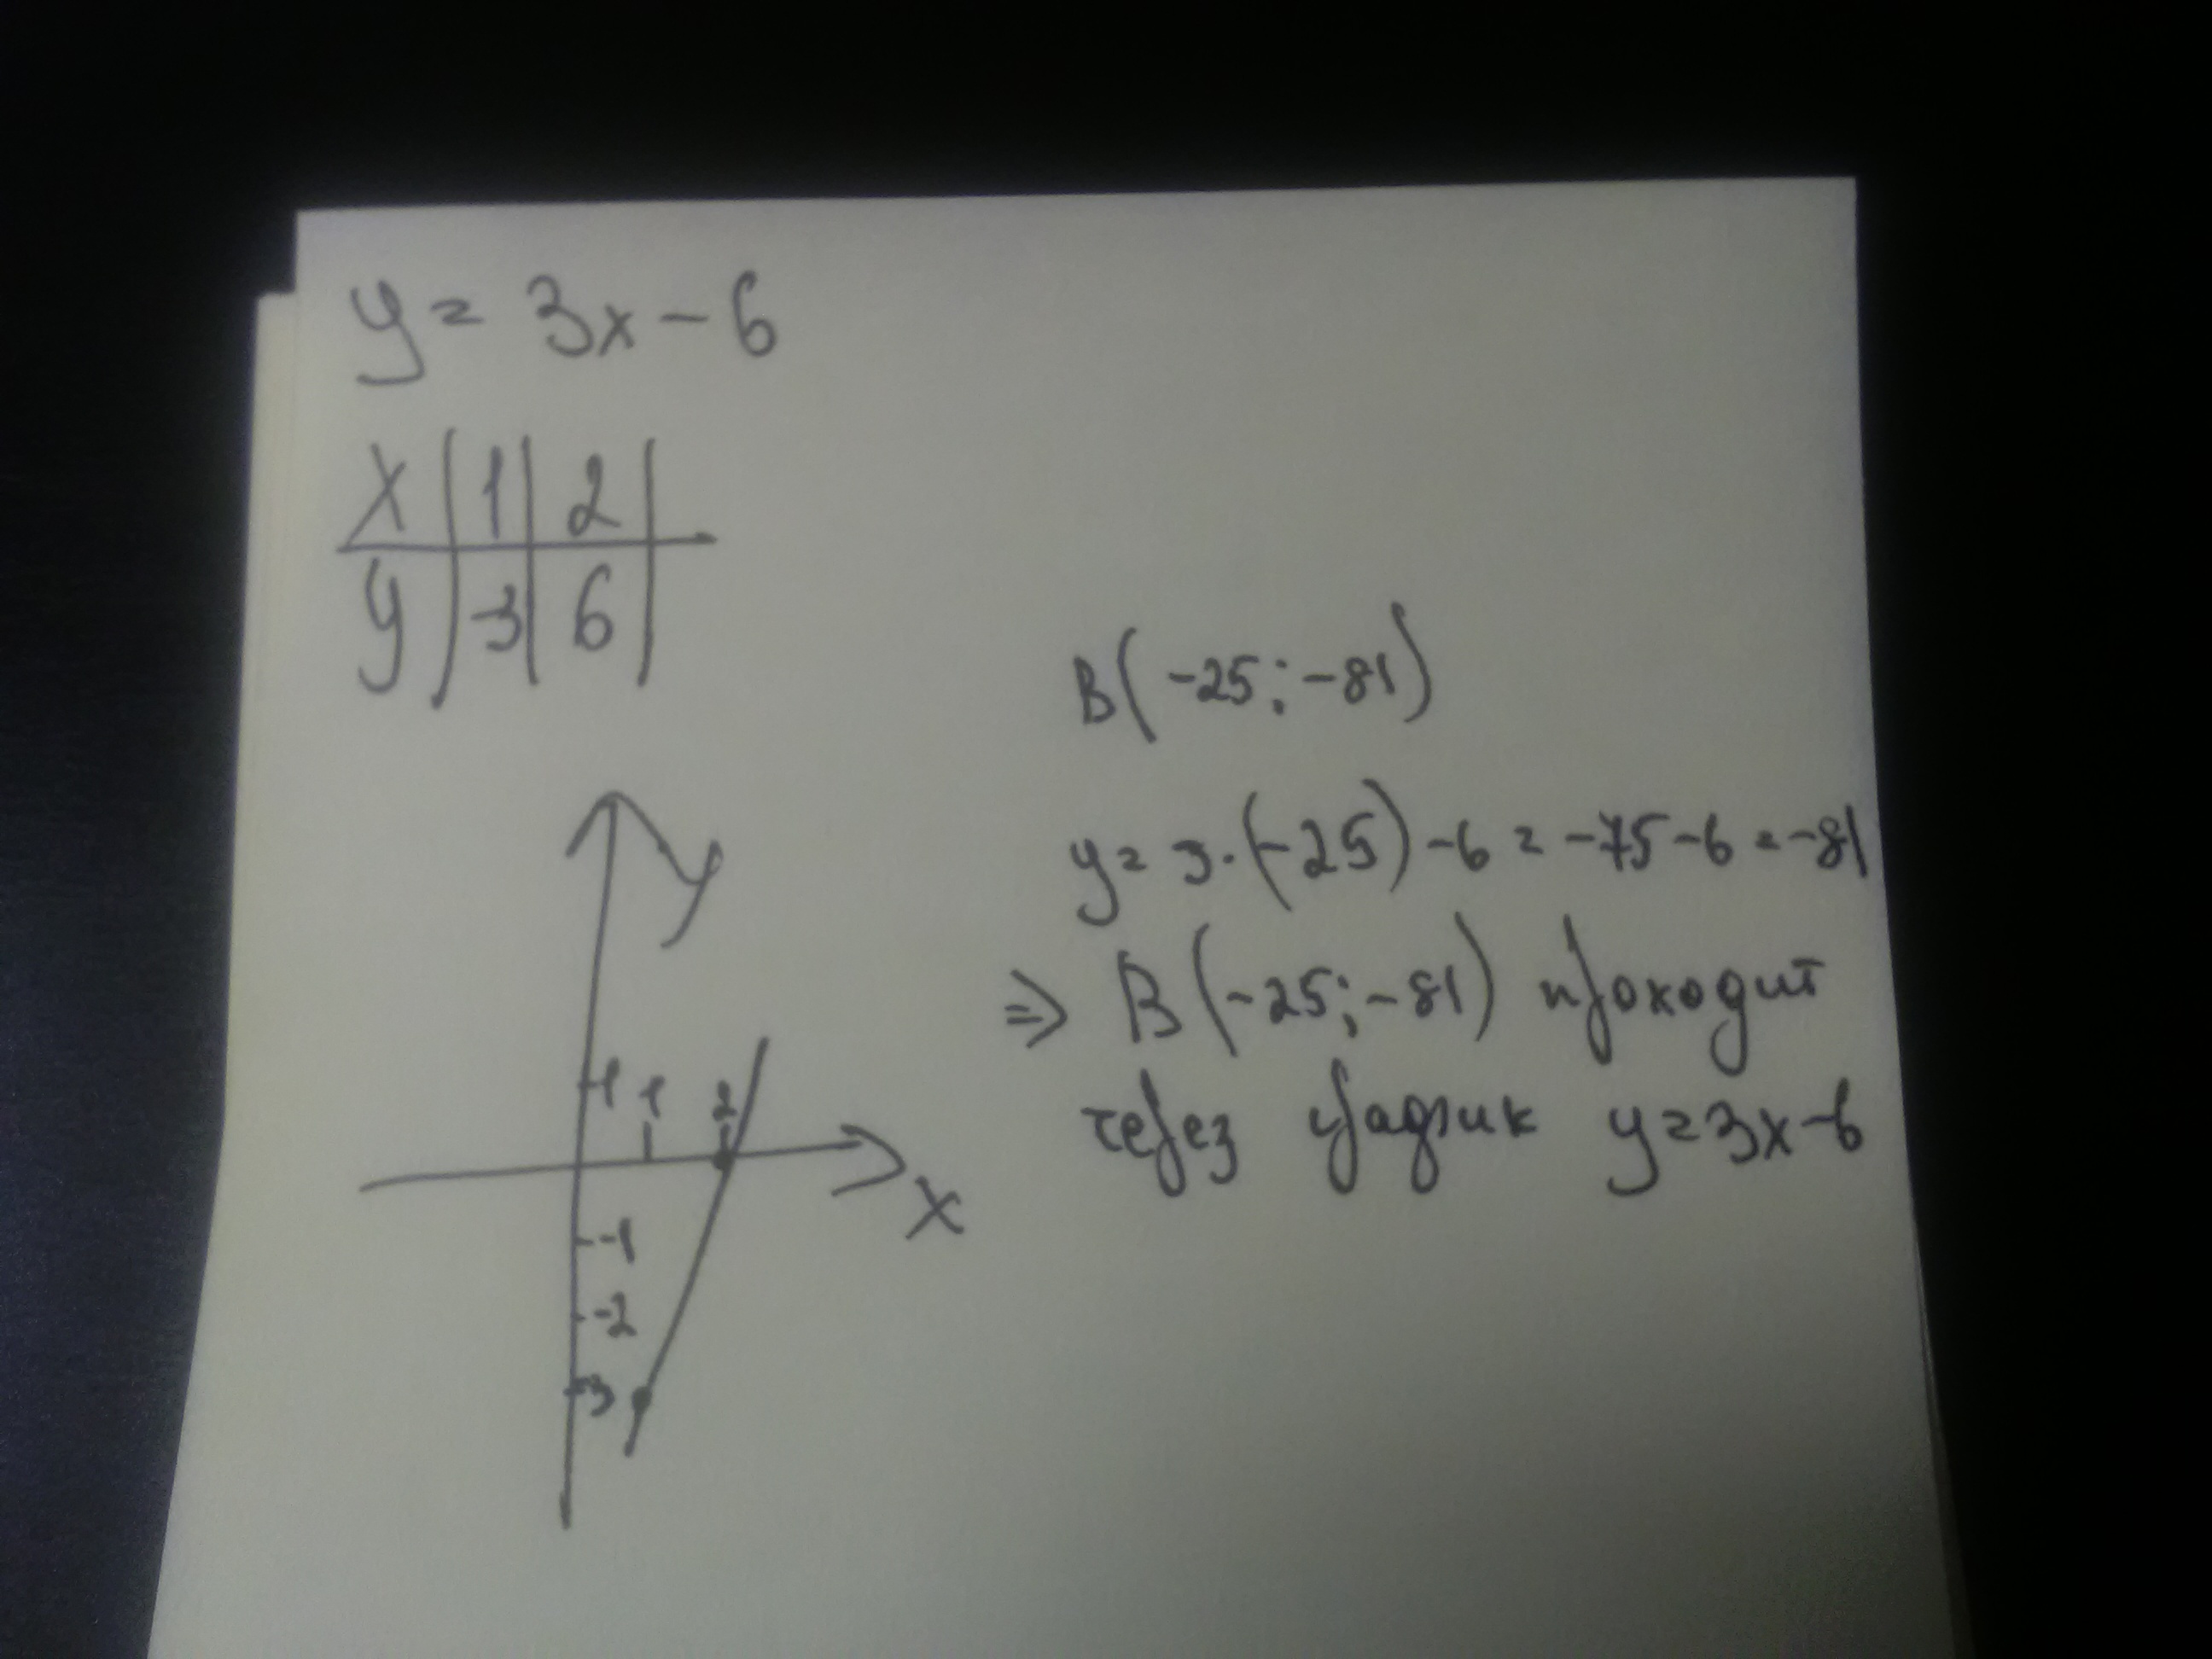 y = 3x - 6
x | 1 | 2 |
y | -3 | 6 |
B(-25; -81)
y = 3·(-25) - 6 = -75 - 6 = -81
⇒ B(-25; -81) проходит
через график y = 3x - 6
y
1 1 2
x
-1
-2
-3